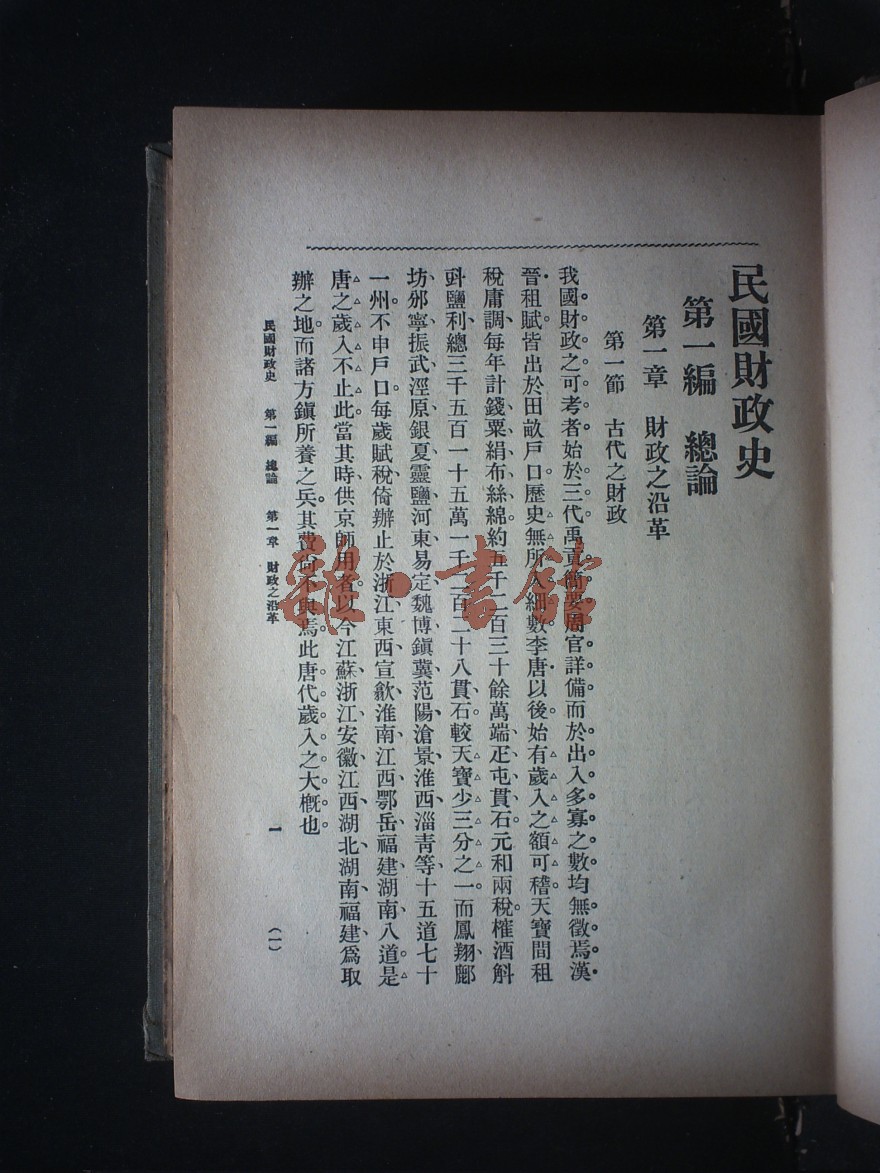 民國財政史
第一編　總論
第一章　財政之沿革
第一節　古代之財政
我國財政之可考者始於三代禹貢簡要周官詳備而於出入多寡之數均無徵焉漢
晉租賦皆出於田畝戶口歷史無所入細數李唐以後始有歲入之額可稽天寶間租
稅庸調每年計錢粟絹布絲綿約五千二百三十餘萬端疋屯貫石元和兩稅榷酒斛
㪷鹽利總三千五百一十五萬一千二百二十八貫石較天寶少三分之一而鳳翔鄜
坊邠寧振武涇原銀夏靈鹽河東易定魏博鎮冀范陽滄景淮西淄青等十五道七十
一州不申戶口每歲賦稅倚辦止於浙江東西宣歙淮南江西鄂岳福建湖南八道是
唐之歲入不止此當其時供京師用者以今江蘇浙江安徽江西湖北湖南福建爲取
辦之地而諸方鎮所養之兵其費尙不與焉此唐代歲入之大槪也
民國財政史　第一編　總論　第一章　財政之沿革　一　(一)
雜·書館